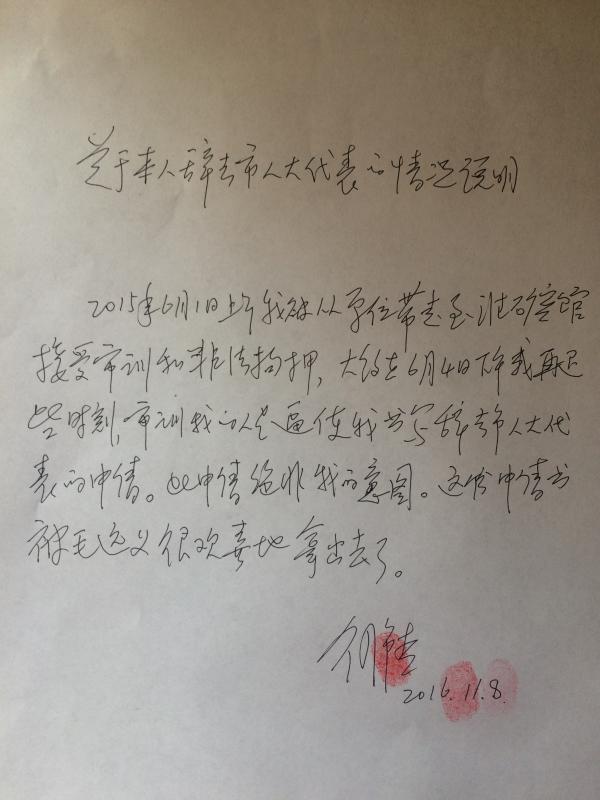 关于本人辞去市人大代表的情况说明
2015年6月1日上午我被从单位带走至淮矿宾馆
接受审训和非法拘押，大约在6月4日下午或再迟
些时刻，审训我的人员逼使我书写辞去市人大代
表的申请。此申请绝非我的意图。这份申请书
被毛这义很欢喜地拿出去了。
2016.11.8.